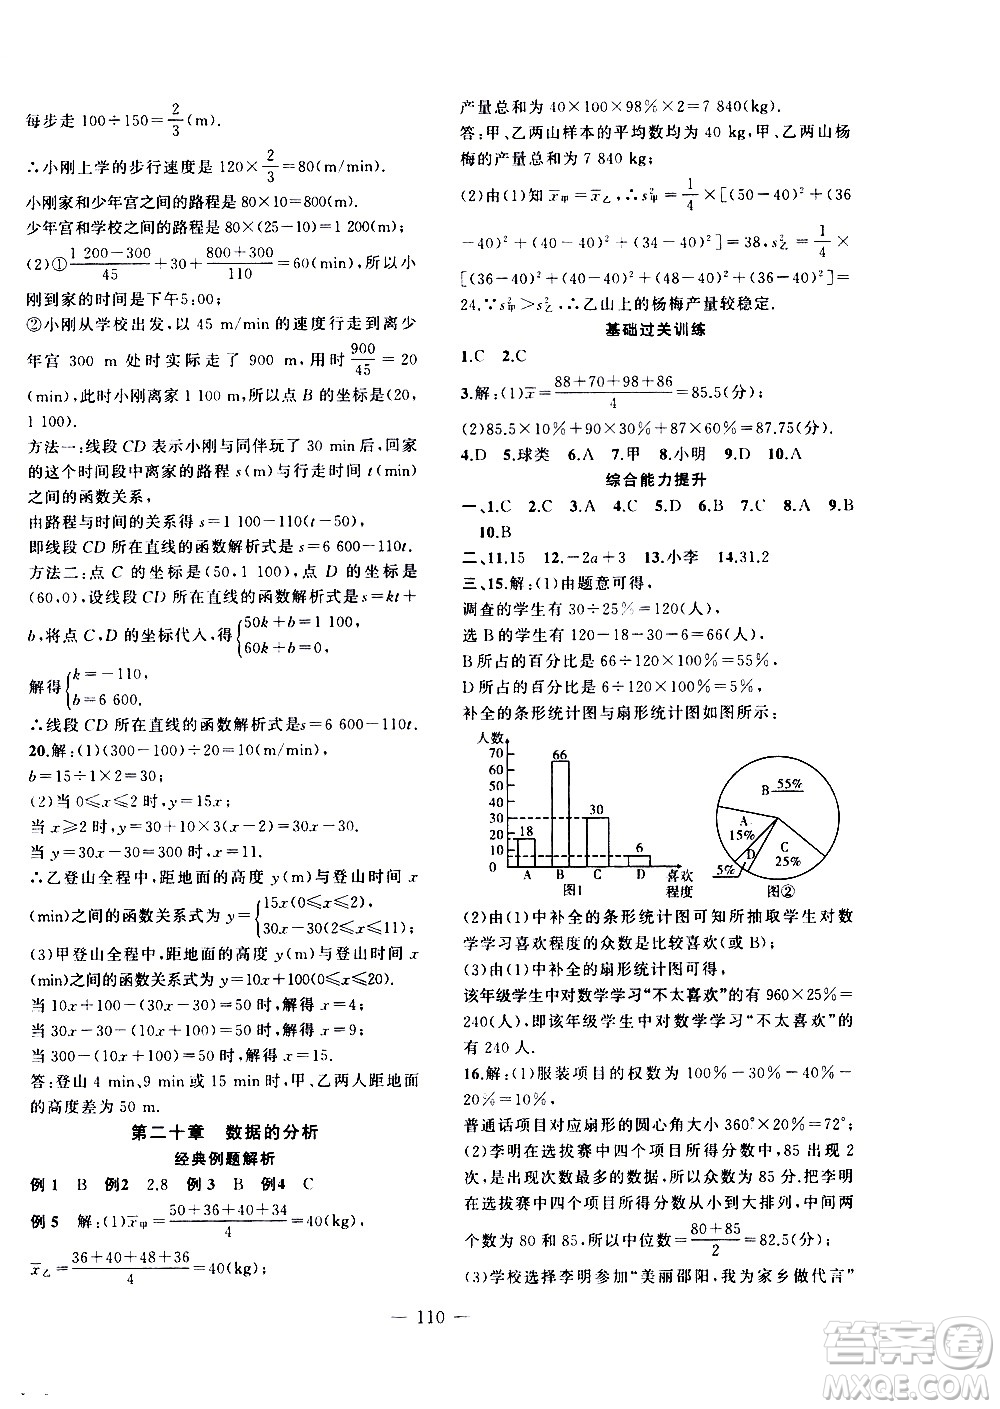 每步走 100÷150=2/3(m).
∴小刚上学的步行速度是 120×2/3=80(m/min).
小刚家和少年宫之间的路程是 80×10=800(m).
少年宫和学校之间的路程是 80×(25-10)=1 200(m);
(2)①(1 200-300)/45+30+(800+300)/110=60(min),所以小
刚到家的时间是下午5:00;
②小刚从学校出发,以 45 m/min 的速度行走到离少
年宫 300 m 处时实际走了 900 m,用时 900/45=20
(min),此时小刚离家 1 100 m,所以点 B 的坐标是(20,
1 100).
方法一:线段 CD 表示小刚与同伴玩了 30 min 后,回家
的这个时间段中离家的路程 s(m)与行走时间 t(min)
之间的函数关系,
由路程与时间的关系得 s=1 100-110(t-50),
即线段 CD 所在直线的函数解析式是 s=6 600-110t.
方法二:点 C 的坐标是(50,1 100),点 D 的坐标是
(60,0),设线段 CD 所在直线的函数解析式是 s=kt+
b,将点 C,D 的坐标代入,得{50k+b=1 100, 60k+b=0,
解得{k=-110, b=6 600.
∴线段 CD 所在直线的函数解析式是s=6 600-110t.
20.解:(1)(300-100)÷20=10(m/min),
b=15÷1×2=30;
(2)当 0≤x≤2 时,y=15x;
当 x≥2 时,y=30+10×3(x-2)=30x-30.
当 y=30x-30=300 时,x=11.
∴乙登山全程中,距地面的高度 y(m)与登山时间 x
(min)之间的函数关系式为 y={15x(0≤x≤2), 30x-30(2≤x≤11);
(3)甲登山全程中,距地面的高度 y(m)与登山时间 x
(min)之间的函数关系式为y=10x+100(0≤x≤20).
当 10x+100-(30x-30)=50 时,解得 x=4;
当 30x-30-(10x+100)=50 时,解得 x=9;
当 300-(10x+100)=50 时,解得 x=15.
答:登山 4 min,9 min 或 15 min 时,甲、乙两人距地面
的高度差为 50 m.
第二十章 数据的分析
经典例题解析
例 1 B 例2 2,8 例 3 B 例4 C
例 5 解:(1)x̄甲=(50+36+40+34)/4=40(kg),
x̄乙=(36+40+48+36)/4=40(kg);
产量总和为 40×100×98%×2=7 840(kg).
答:甲、乙两山样本的平均数均为 40 kg,甲、乙两山杨
梅的产量总和为 7 840 kg;
(2)由(1)知 x̄甲=x̄乙,∴s²甲=1/4×[(50-40)²+(36
-40)²+(40-40)²+(34-40)²]=38,s²乙=1/4×
[(36-40)²+(40-40)²+(48-40)²+(36-40)²]=
24.∵s²甲>s²乙,∴乙山上的杨梅产量较稳定.
基础过关训练
1.C 2.C
3.解:(1)x̄=(88+70+98+86)/4=85.5(分);
(2)85.5×10%+90×30%+88×60%=87.75(分).
4.D 5.球类 6.A 7.甲 8.小明 9.A
综合能力提升
一、1.C 2.C 3.A 4.B 5.C 6.D 7.C 8.A 9.B
10.B
二、11.15 12.-2a+3 13.小李 14.31.2
三、15.解:(1)由题意可得,
调查的学生有 30÷25%=120(人),
选 B 的学生有 120-18-30-6=66(人),
B 所占的百分比是 66÷120×100%=55%,
D 所占的百分比是 6÷120×100%=5%,
补全的条形统计图与扇形统计图如图所示:
人数
70
60
50
40
30
20
10
0
18
66
30
6
A B C D 喜欢程度
图1
B 55%
A 15%
D
C 25%
5%
图②
(2)由(1)中补全的条形统计图可知所抽取学生对数
学学习喜欢程度的众数是比较喜欢(或 B);
(3)由(1)中补全的扇形统计图可得,
该年级学生中对数学学习“不太喜欢”的有 960×25%=
240(人),即该年级学生中对数学学习“不太喜欢”的
有 240 人.
16.解:(1)服装项目的权数为 100%-30%-40%-
20%=10%,
普通话项目对应扇形的圆心角大小为360°×20%=72°;
(2)李明在选拔赛中四个项目所得分数中,85 出现 2
次,是出现次数最多的数据,所以众数为 85 分.把李明
在选拔赛中四个项目所得分数从小到大排列,中间两
个数为 80 和 85,所以中位数为(80+85)/2=82.5(分);
(3)学校选择李明参加“美丽邵阳,我为家乡做代言”
— 110 —
答案圈
MXQE.COM